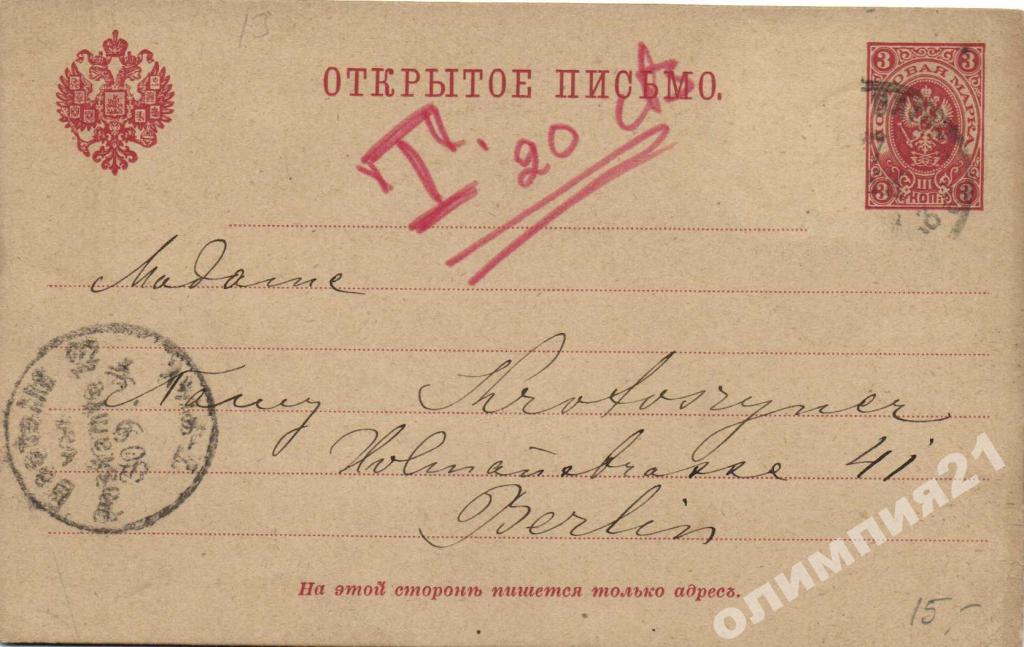 13
ОТКРЫТОЕ ПИСЬМО.
3 3
ПОЧТОВАЯ МАРКА
3 III 3
КОП.
T. 20
Madame
Krotoszyner
Holmanstrasse 41
Berlin
На этой сторонѣ пишется только адресъ.
15,-
олимпия21